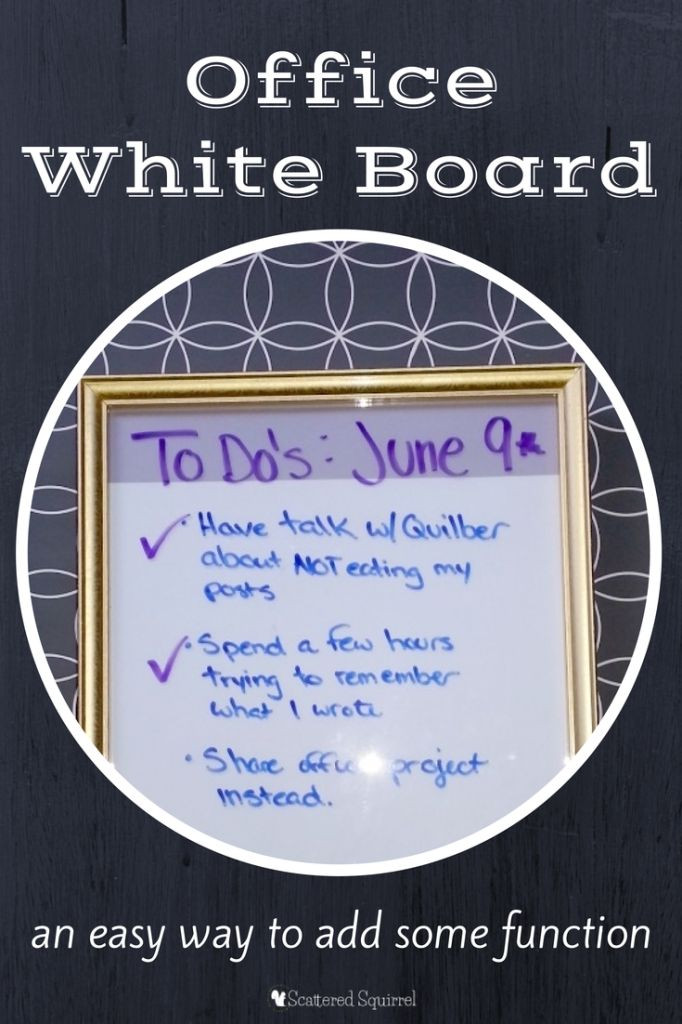 Office
White Board
To Do's: June 9th
• Have talk w/Quilber
about NOT eating my
posts
• Spend a few hours
trying to remember
what I wrote
• Share office project
instead.
an easy way to add some function
Scattered Squirrel